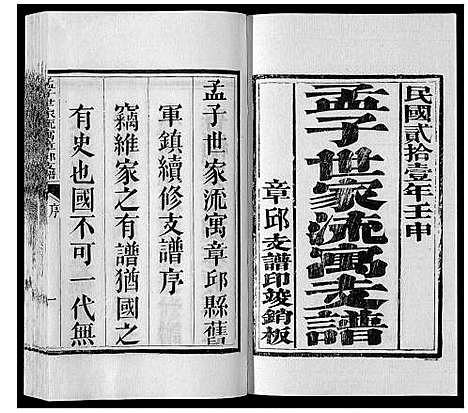 民國貳拾壹年壬申
孟子世家流寓支譜
章邱支譜印竣銷板
孟子世家流寓章邱縣舊
軍鎮續修支譜序
竊維家之有譜猶國之
有史也國不可一代無
序
一